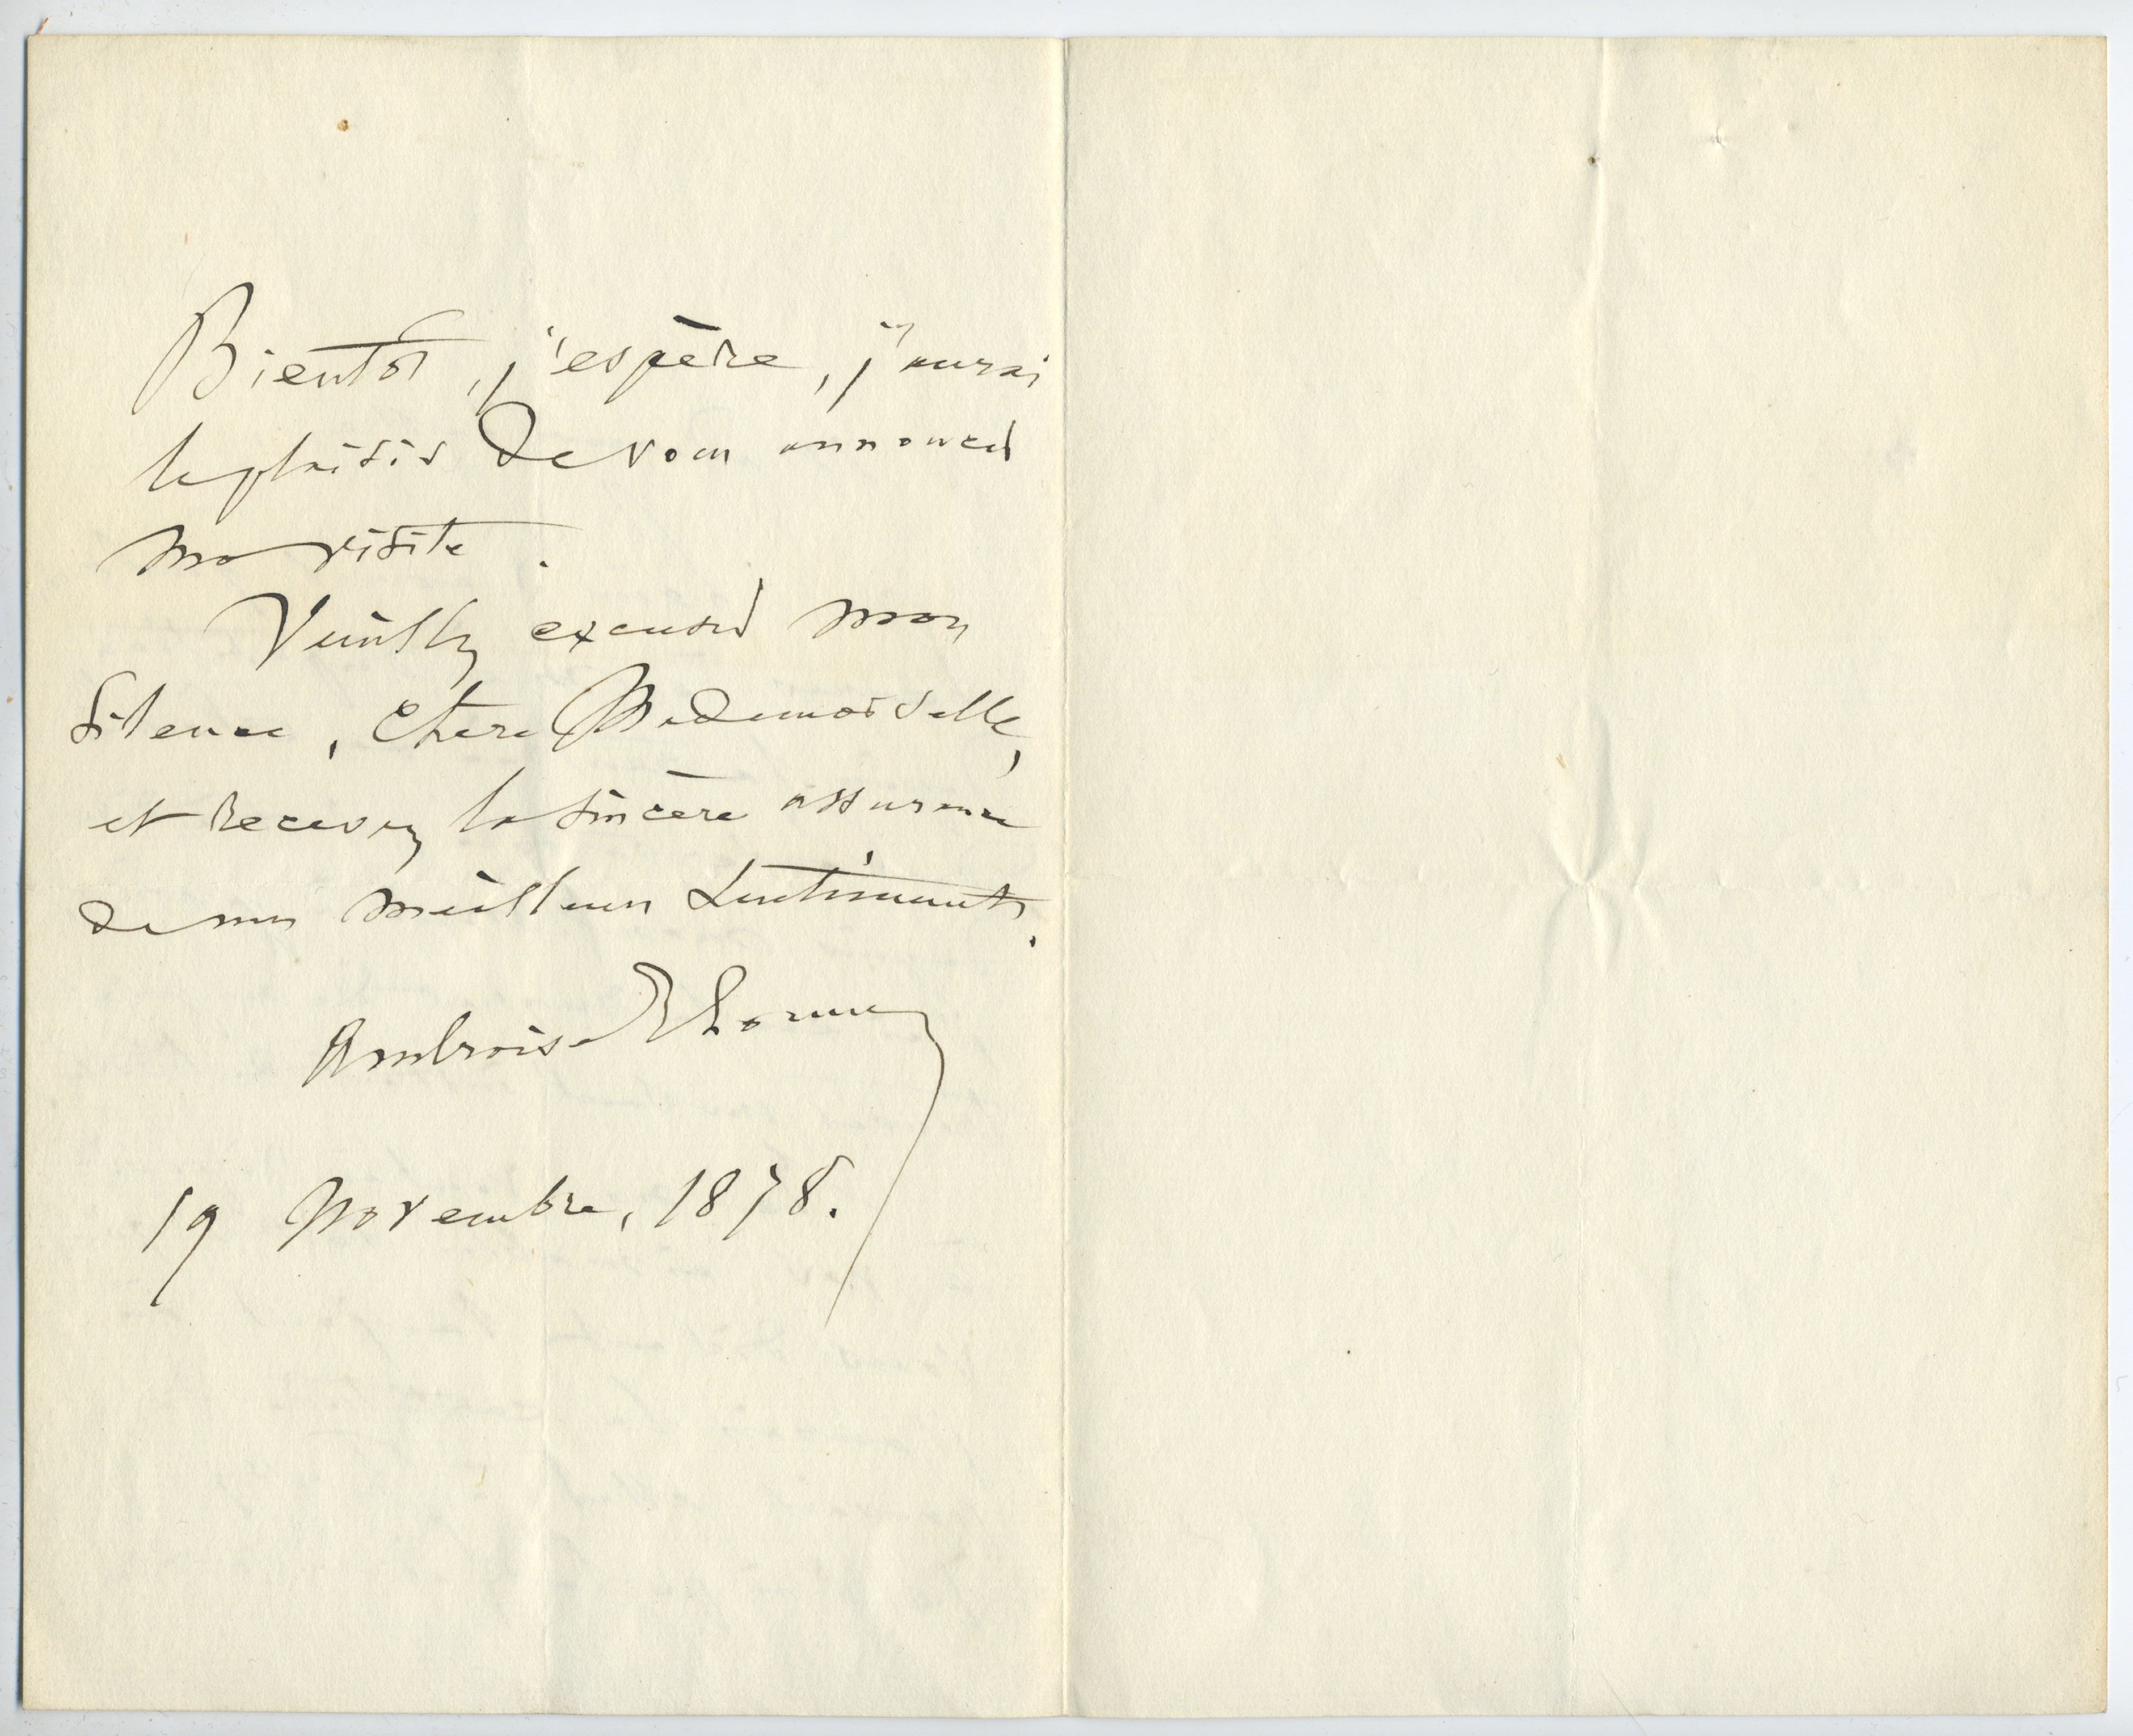 Bientôt, j'espère, j'aurai
le plaisir de vous annoncer
ma visite.
Veuillez excuser mon
silence, Chère Mademoiselle,
et recevez la sincère assurance
de mes meilleurs sentiments.
Ambroise Thomas
19 Novembre, 1878.